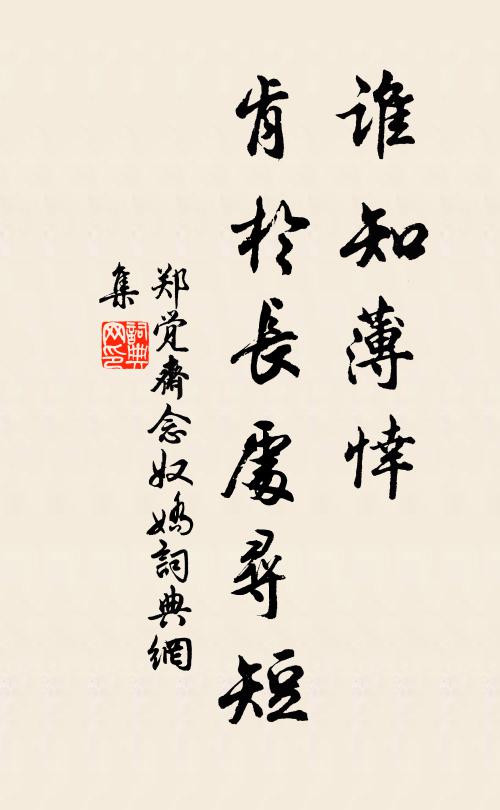 誰知薄悻
肯於長處尋短
郑觉齋念奴嬌詞典網
集
詞典
网印